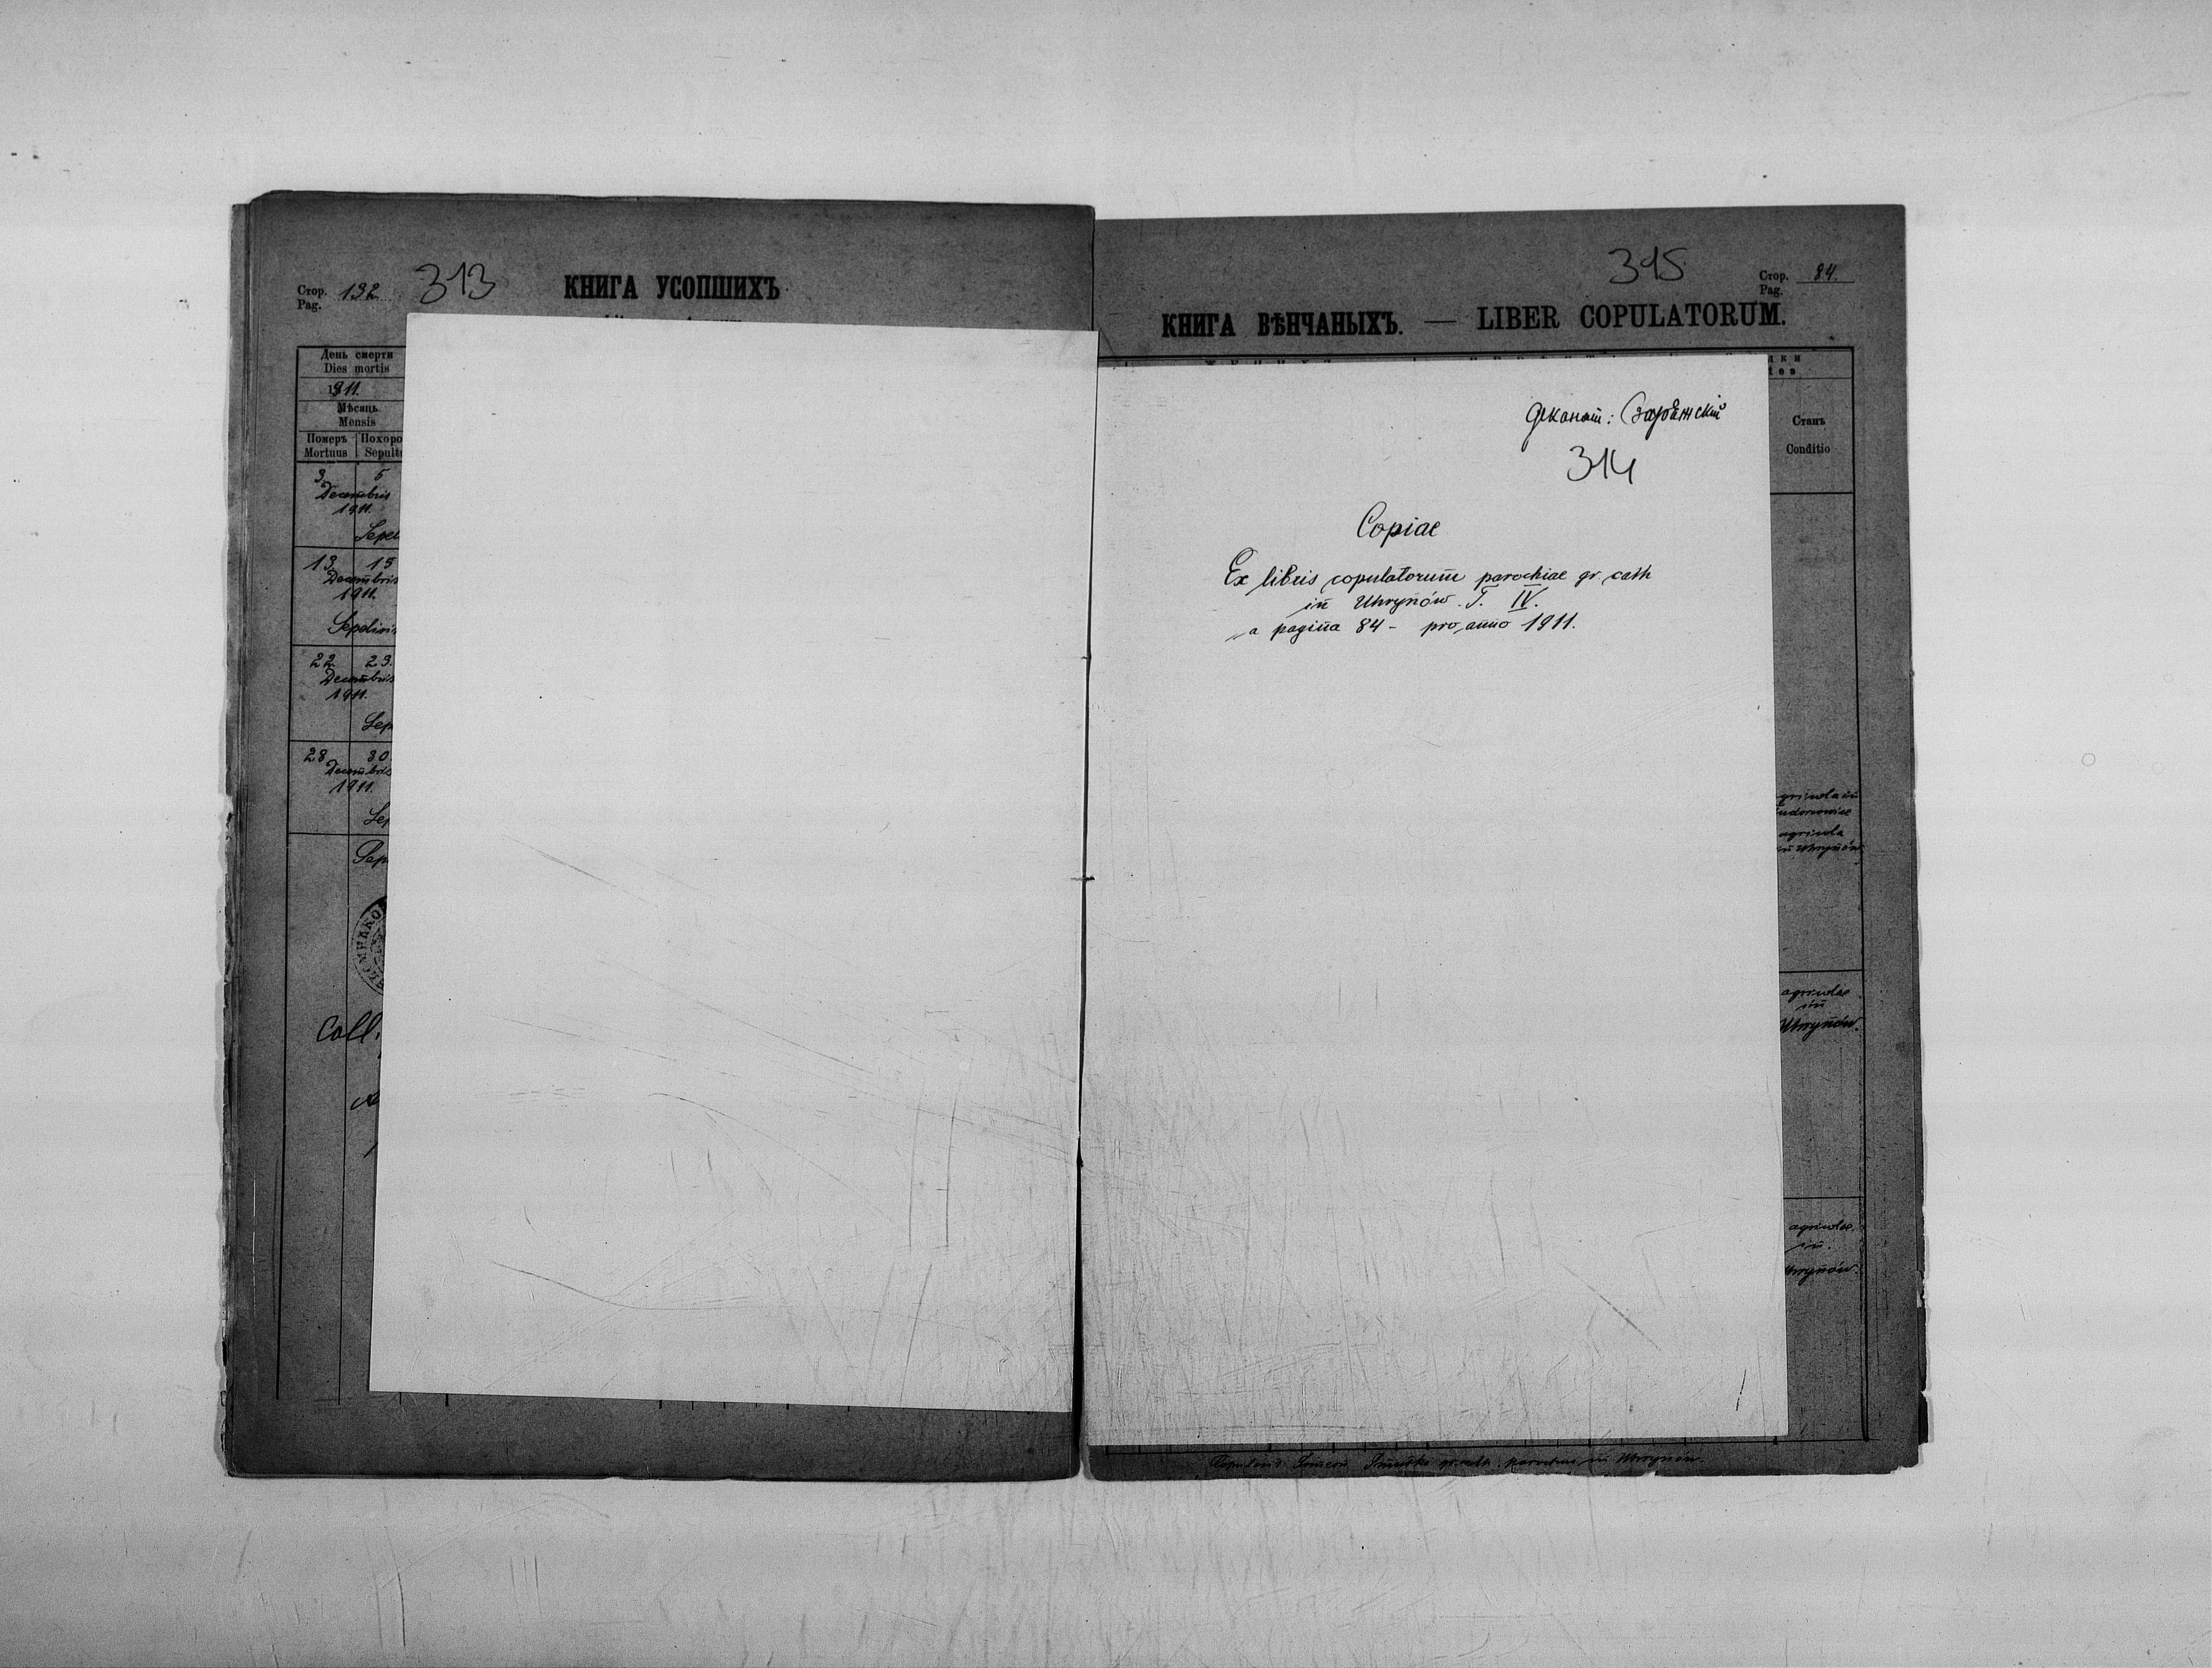 Стор. 192 313 КНИГА УСОПШИХЪ
Pag.
День смерти
Dies mortis
1911.
Мѣсяць
Mensis
Померъ Похоро
Mortuus Sepult
3 5
Decembris
1911.
Sepel
13 15
Decembris
1911.
Sepelivi
22 23.
Decembris
1911.
Sep
28 30
Decembris
1911.
Sep
Coll
315 Стор. 84.
Pag.
КНИГА ВѢНЧАНЫХЪ. — LIBER COPULATORUM.
деканат:
314
Copiae
Ex libris copulatorum parochiae gr. cath
in Uhrynów. T. IV.
a pagina 84 - pro anno 1911.
Станъ
Conditio
agricola
in Uhrynów
agricolae
in
Uhrynów.
agricolae
in.
Uhrynów.
gr. cath. parochus in Uhrynów.